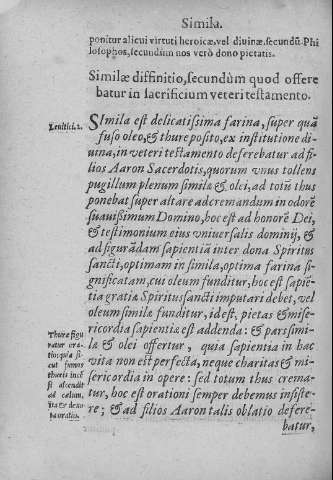 Simila.
ponitur alicui virtuti heroicæ, vel diuinæ, secundũ Phi
losophos, secundùm nos verò dono pietatis.
Similæ diffinitio, secundùm quod offere
batur in sacrificium veteri testamento.
Leuitici. 2.
SImila est delicatissima farina, super quā
fuso oleo, & thure posito, ex institutione di-
uina, in veteri testamento deferebatur ad fi-
lios Aaron Sacerdotis, quorum vnus tollens
pugillum plenum simila & olei, ad totũ thus
ponebat super altare adcremandum in odorē
suauissimum Domino, hoc est ad honorē Dei,
& testimonium eius vniuersalis dominij, &
ad figurādam sapientiā inter dona Spiritus
sancti, optimam in simila, optima farina si-
gnificatam, cui oleum funditur, hoc est sapiē-
tia gratiæ Spiritus sancti imputari debet, vel
oleum similæ funditur, id est, pietas & mise-
ricordia sapientiæ est addenda: & pars simi-
læ & olei offertur, quia sapientia in hac
vita non est perfecta, neque charitas & mi-
sericordia in opere: sed totum thus crema-
tur, hoc est orationi semper debemus insiste-
re; & ad filios Aaron talis oblatio defere-
batur,
Thure figu
ratur ora-
tio: quia si-
cut fumus
thuris incē
si ascendit
ad cælum,
ita & deuo
ta oratio.